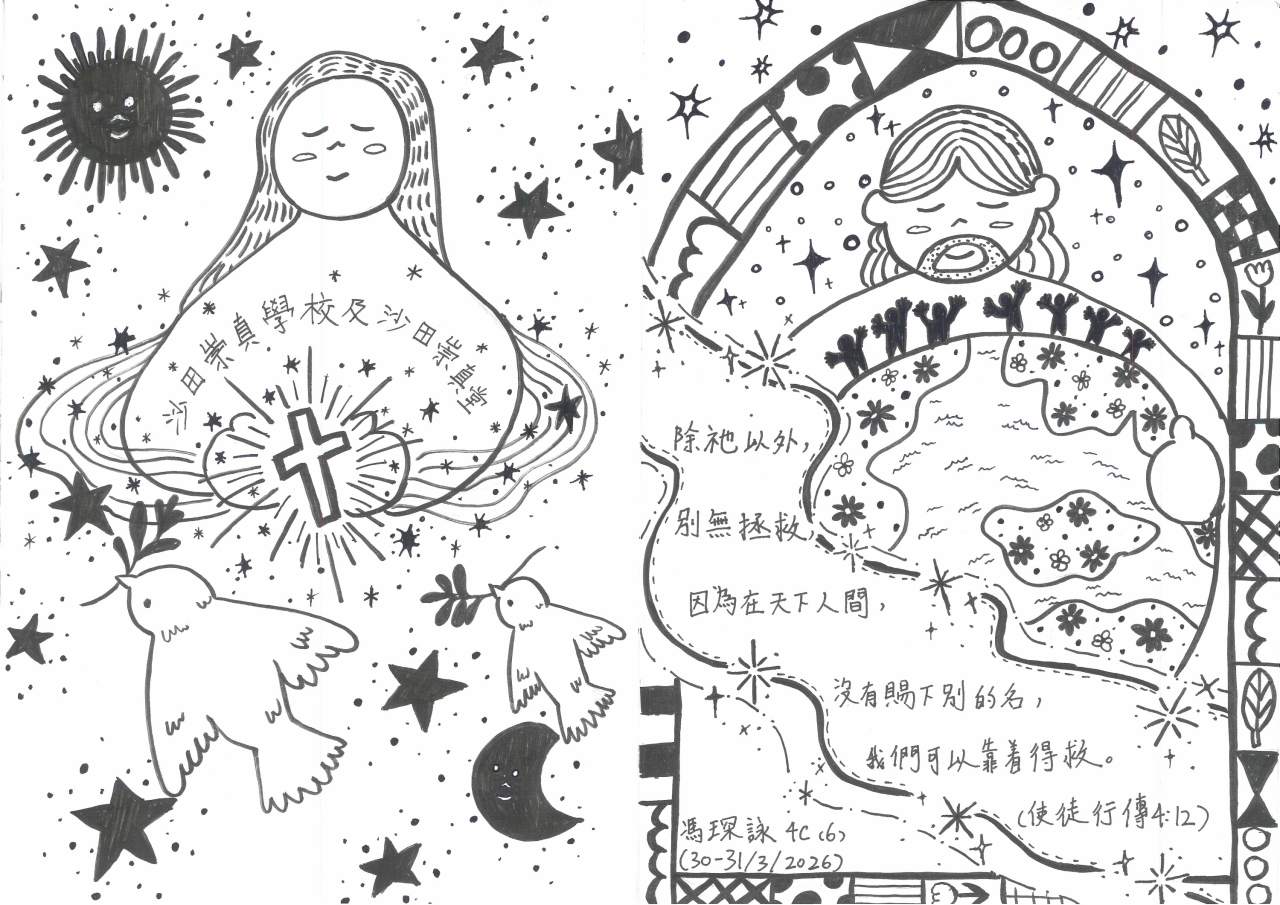 沙田崇真學校及沙田崇真堂
除祂以外,
別無拯救,
因為在天下人間,
沒有賜下別的名,
我們可以靠着得救。
(使徒行傳4:12)
馮琛詠 4C (6)
(30-31/3/2026)